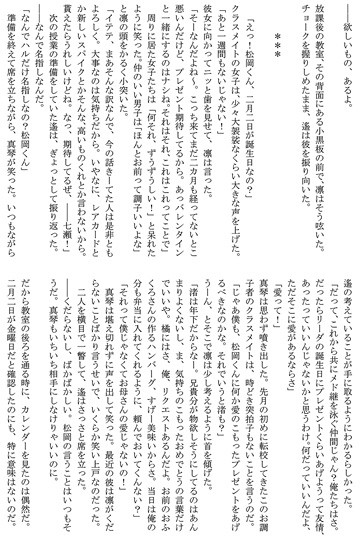 ――欲しいもの、あるよ。
放課後の教室、その背面にある小黒板の前で、凛はそう呟いた。
チョークを握りしめたまま、遙は彼を振り向いた。
***
「えっ！松岡くん、二月二日が誕生日なの？」
クラスメイトの女子は、少々大袈裟なくらい大きな声を上げた。
「あと一週間もないじゃない！」
彼女に向かってニッと歯を見せて、凛は言った。
「そーなんだよね～。こっち来てまだ二カ月も経ってないとこ
悪いんだけど、プレゼント期待してるから。あっバレンタイン
と一緒にするのはナシね。それはそれ、これはこれってことで」
周りに居た女子たちは「何それ、ずうずうしい！」と呆れた
ように笑った。仲のいい男子は「ほんとお前って調子いいよな」
と凛の頭をかるく小突いた。
「イテテ、まあそんな訳なんで、今の話きーてた人は是非とも
よろしく。大事なのは気持ちだから。いやなに、レアカードと
か新しいスパイクとかそんな、高いものくれとか言わないから。
貰えたらうれしいけどね。なっ、期待してるぜ、――七瀬！」
――なんでおれ指しなんだ。
次の授業の準備をしていた遙は、ぎょっとして振り返った。
「なんでハルだけを指しなの？松岡くん」
準備を終えて席を立ちながら、真琴が笑った。いつもながら
遙の考えていることが手に取るようにわかるらしかった。
「だって、これから共にメド継を泳ぐ仲間じゃん？俺たちはさ。
だったらリーダの誕生日にプレゼントくらいあげようって友情、
あったっていいんじゃないかと思うわけ。何だっていいんだよ、
ただそこに愛があるならさ」
「愛って！」
真琴は思わず噴き出した。先月の初めに転校してきたこのお調
子者のクラスメイトは、時どき突拍子もないことを言うのだ。
「じゃあ僕も、松岡くんに何か愛のこもったプレゼントをあげ
るべきなのかな。それでいうと渚も？」
うーん、とそこで凛は少し考えるように首を傾げた。
「渚は年下だからなー。兄貴分が物欲しそうにしてるのはあん
まりよくないし。ま、気持ちのこもったおめでとうの言葉だけ
でいいや。橘にはさ、俺、リクエストあるんだよ。お前のおふ
くろさんの作るハンバーグ、すげー美味いからさ。当日は俺の
分も弁当に入れてくれるように、頼んでおいてくんない？」
「それって僕じゃなくてお母さんの愛じゃない！」
真琴は堪え切れずに声を出して笑った。最近の彼は凛がくだ
らないことばかり言うせいで、いくらか笑い上戸なのだった。
二人を横目で一瞥して、遙はさっさと席を立った。
――くだらないし、ばかばかしい。松岡の言うことはいつもそ
うだ。真琴もいちいち相手にしなけりゃいいのに。
だから教室の後ろを通る時に、カレンダーを見たのは偶然だ。
二月二日が金曜日だと確認したのにも、特に意味はないのだ。